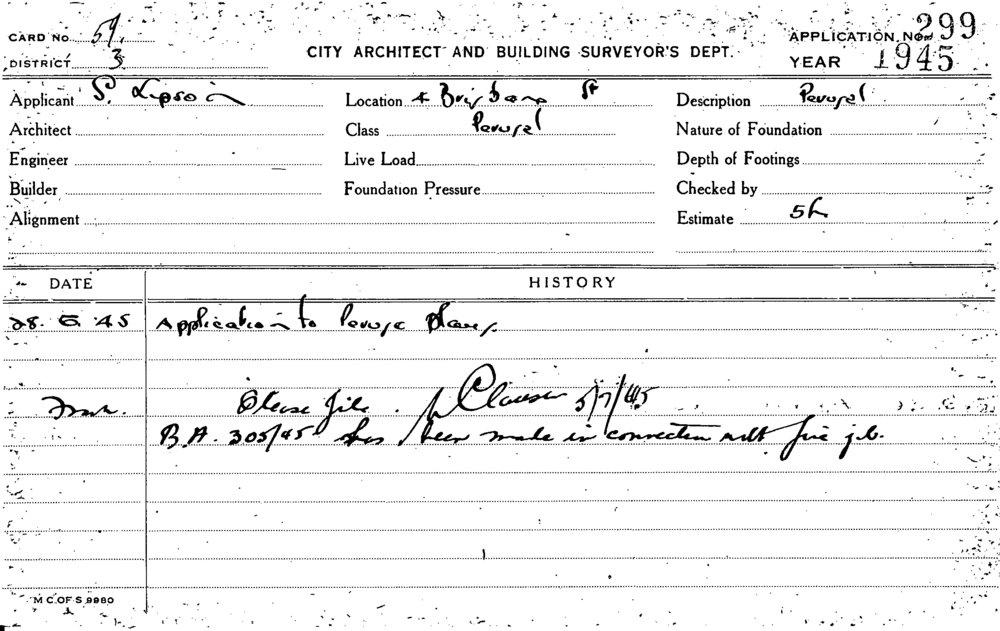 CARD NO. 59. CITY ARCHITECT AND BUILDING SURVEYOR'S DEPT. APPLICATION NO. 299
DISTRICT 3 YEAR 1945
Applicant S. Lipson Location 4 Brisbane St Description Perusal
Architect Class Perusal Nature of Foundation
Engineer Live Load Depth of Footings
Builder Foundation Pressure Checked by
Alignment Estimate 5/-
DATE HISTORY
28. 6. 45 Application to Peruse plans.
Please file. 5/7/45
B.A. 305/45 has been made in connection with job.
M C. OF S 9980